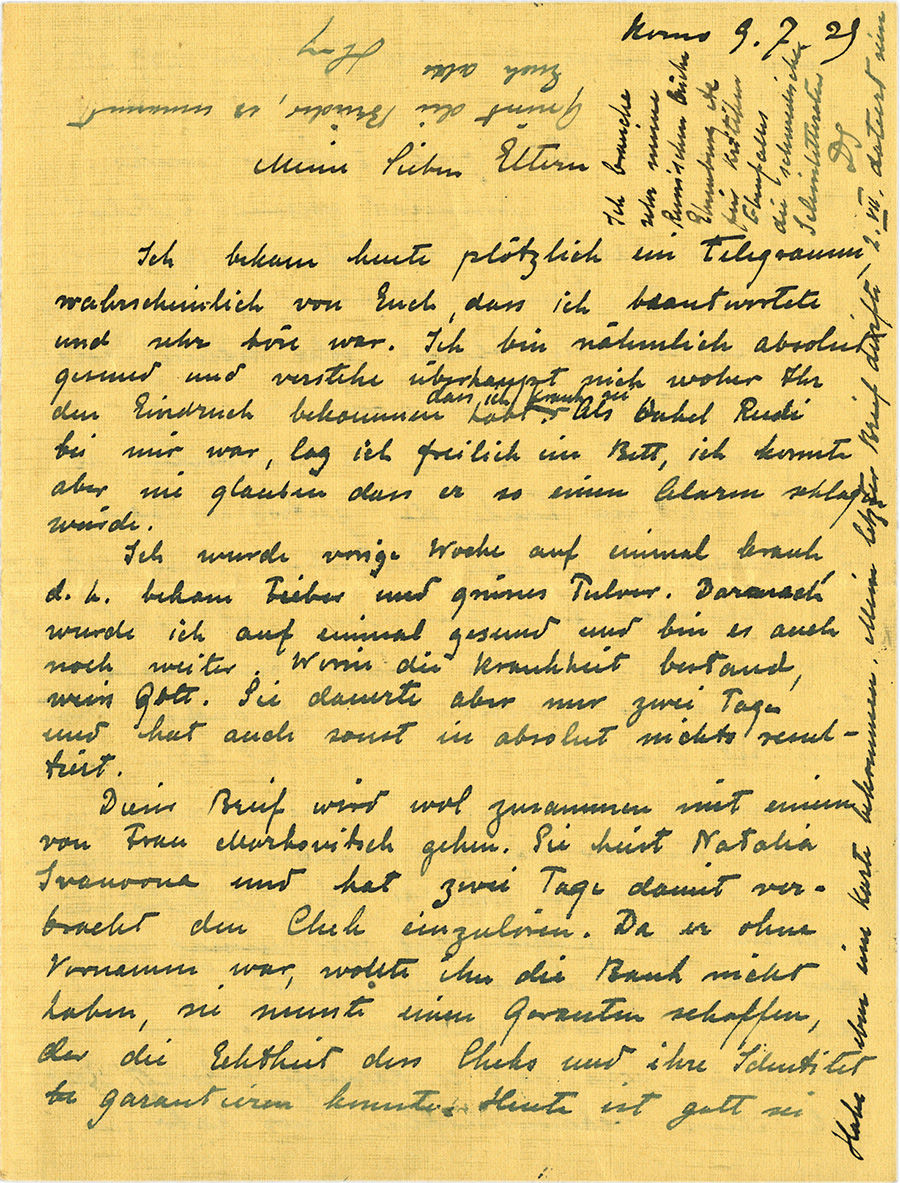 Kovno 9. 7. 29
Meine lieben Eltern
Ich bekam heute plötzlich ein Telegramm,
wahrscheinlich von Euch, dass ich beantwortete
und sehr böse war. Ich bin nähmlich absolut
gesund und verstehe überhaupt nich woher Ihr
den Eindruck bekommen habt, dass ich krank sei. Als Onkel Rudi
bei mir war, lag ich freilich im Bett, ich konnte
aber nie glauben dass er so einen Alarm schlagen
würde.
Ich wurde vorige Woche auf einmal krank,
d. h. bekam Fieber und grünes Pulver. Darnach
wurde ich auf einmal gesund und bin es auch
noch weiter. Worin die Krankheit bestand,
weis Gott. Sie dauerte aber nur zwei Tage
und hat auch sonst in absolut nichts resul-
tiert.
Dieser Brief wird wol zusammen mit einem
von Frau Markovitsch gehen. Sie heist Natalia
Ivanovna und hat zwei Tage damit ver-
bracht den Chek einzulösen. Da er ohne
Vornamen war, wollte ihn die Bank nicht
haben, sie musste einen Garanten schaffen,
der die Echtheit des Cheks und ihre Identitet
garantieren konnte. Heute ist gott sei
Ich brauche
sehr meine
Russischen Bücher
Ehrenburg etc
für
Ebenfalls
die schwedische
Habe eben eine Karte bekommen. Mein letzter Brief dürfte 2. VII. datiert sein
DS
Grüsst die Brüder, es umarmt
Euch alle